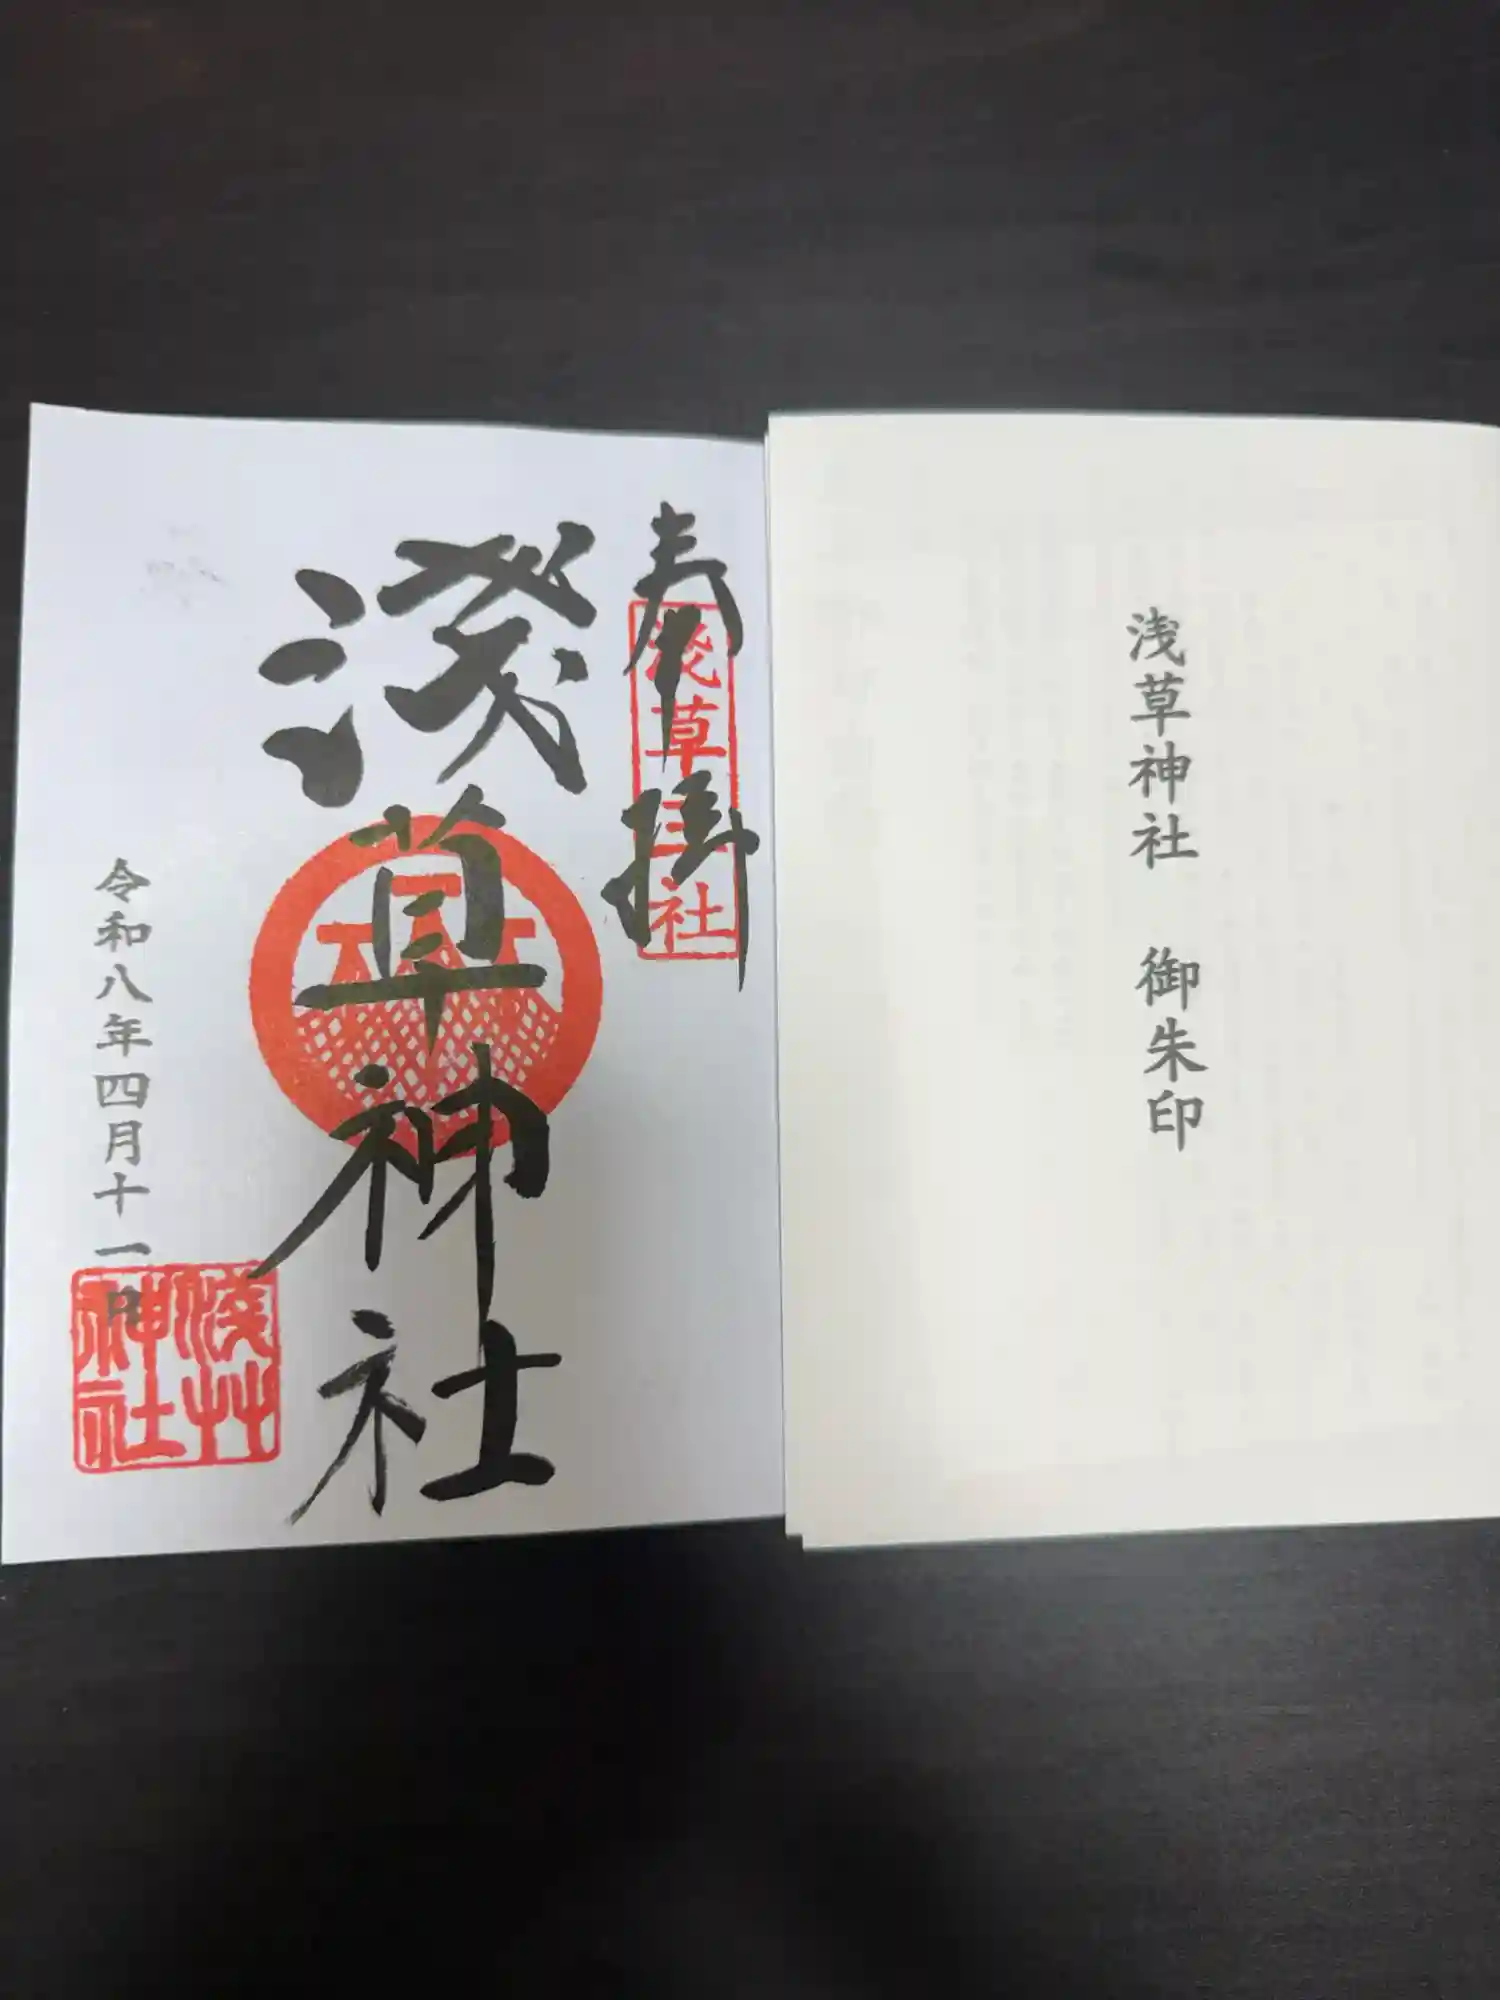 浅草神社 御朱印
奉拝
浅草三社
淺草神社
令和八年四月十一日
淺艸
神社